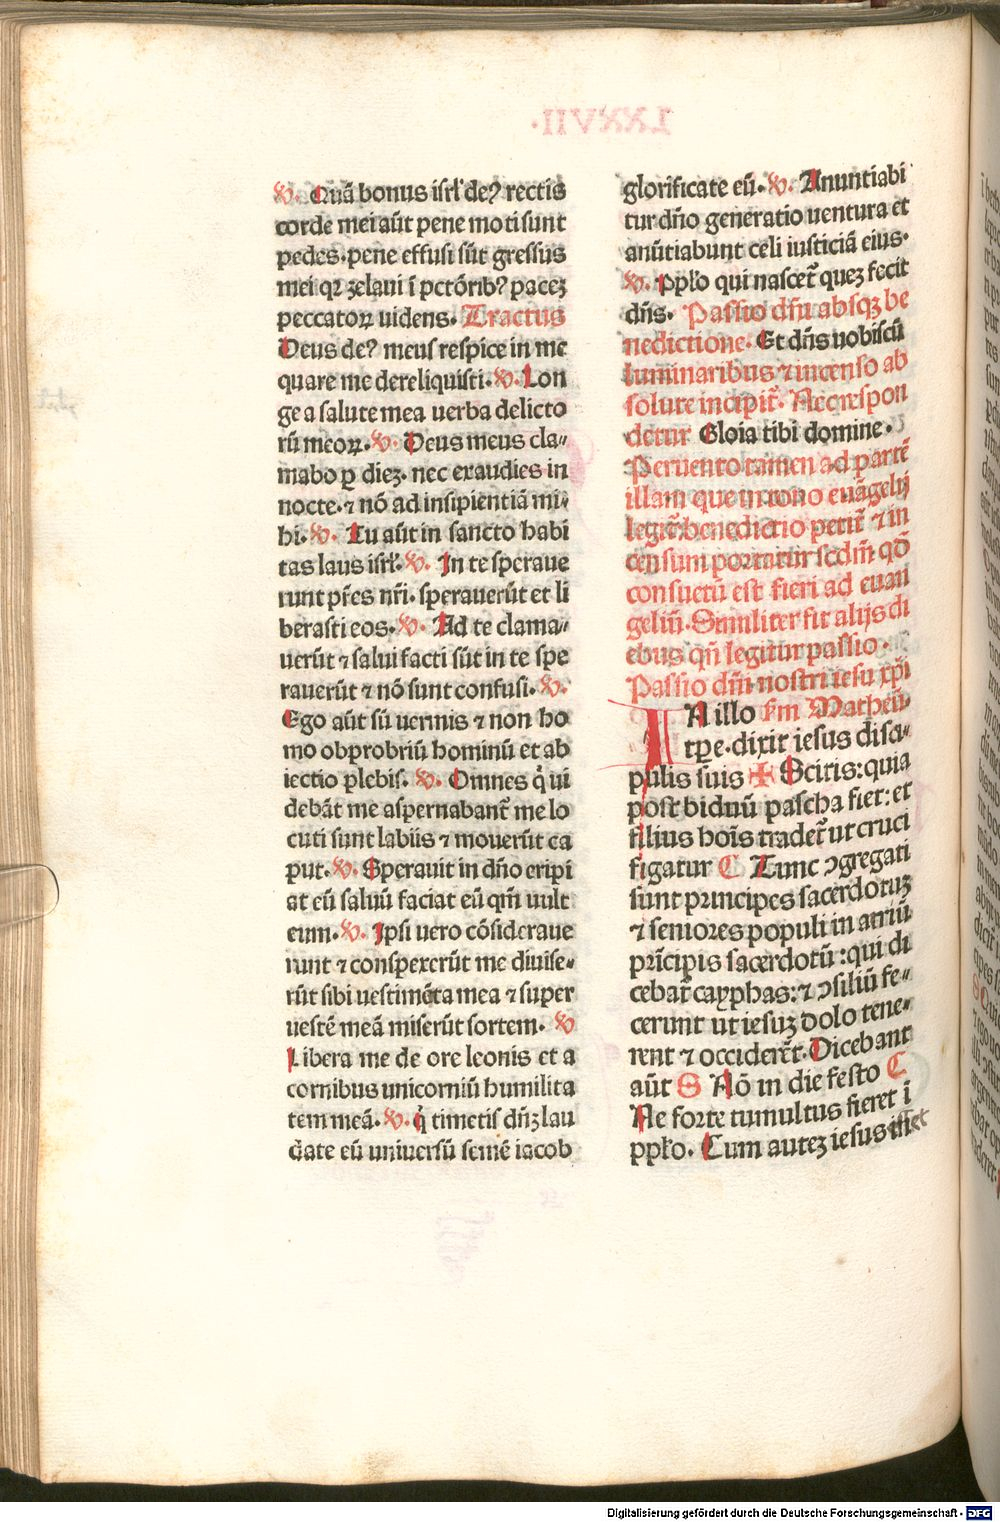 ℣. Quã bonus isrl' deꝰ rectis
corde mei aũt pene moti sunt
pedes. pene effusi sũt gressus
mei qꝛ zelaui ĩ pctõribꝰ pacez
peccatoꝝ uidens. Tractus
Deus deꝰ meus respice in me
quare me dereliquisti. ℣. Lon
ge a salute mea uerba delicto
rũ meoꝝ. ℣. Deus meus cla⸗
mabo ꝑ diez. nec exaudies in
nocte. ⁊ nõ ad insipientiã mi⸗
hi. ℣. Tu aũt in sancto habi
tas laus isrl'. ℣. In te speraue
runt pr̃es nr̃i. sperauerũt et li
berasti eos. ℣. Ad te clama⸗
uerũt ⁊ salui facti sũt in te spe
rauerũt ⁊ nõ sunt confusi. ℣.
Ego aũt sũ uermis ⁊ non ho
mo obprobriũ hominũ et ab
iectio plebis. ℣. Omnes q̇ ui
debãt me aspernabant̃ me lo
cuti sunt labiis ⁊ mouerũt ca
put. ℣. Sperauit in dño eripi
at eũ saluũ faciat eũ qm̃ uult
eum. ℣. Ipsi uero cõsideraue
runt ⁊ conspexerũt me diuise⸗
rũt sibi uestimẽta mea ⁊ super
uestẽ meã miserũt sortem. ℣
Libera me de ore leonis et a
cornibus unicorniũ humilita
tem meã. ℣. q̇ timetis dñz lau
date eũ uniuersũ semẽ iacob
glorificate eũ. ℣. Anuntiabi
tur dño generatio uentura et
anũtiabunt celi iusticiã eius.
℣. pplo qui nascet̃ quez fecit
dñs. Passio dñi absqꝫ be
nedictione. Et dñs uobiscũ
luminaribus ⁊ incenso ab
solute incipit̃. Nec respon
detur Gloia tibi domine.
Peruento tamen ad partẽ
illam que in tono euãgelij
legit̃ benedictio petit̃ ⁊ in
censum portatur scdm̃ qđ
consuetũ est fieri ad euan
geliũ. Similiter fit alijs di
ebus qñ legitur passio.
Passio dñi nostri iesu xp̃i
IN illo km̃ Matheũ.
tꝑe. dixit iesus disci⸗
pulis suis ✠ Scitis: quia
post biduũ pascha fiet: et
filius hoĩs tradet̃ ut cruci
figatur C Tunc ↄgregati
sunt principes sacerdotuꝫ
⁊ seniores populi in atriũ
prĩcipis sacerdotũ: qui di
cebat̃ cayphas: ⁊ ↄsiliũ fe⸗
cerunt ut iesuꝫ dolo tene⸗
rent ⁊ occiderẽt. Dicebant
aũt S Nõ in die festo C
Ne forte tumultus fieret ĩ
pplo. Cum autez iesus esset
Digitalisierung gefördert durch die Deutsche Forschungsgemeinschaft - DFG